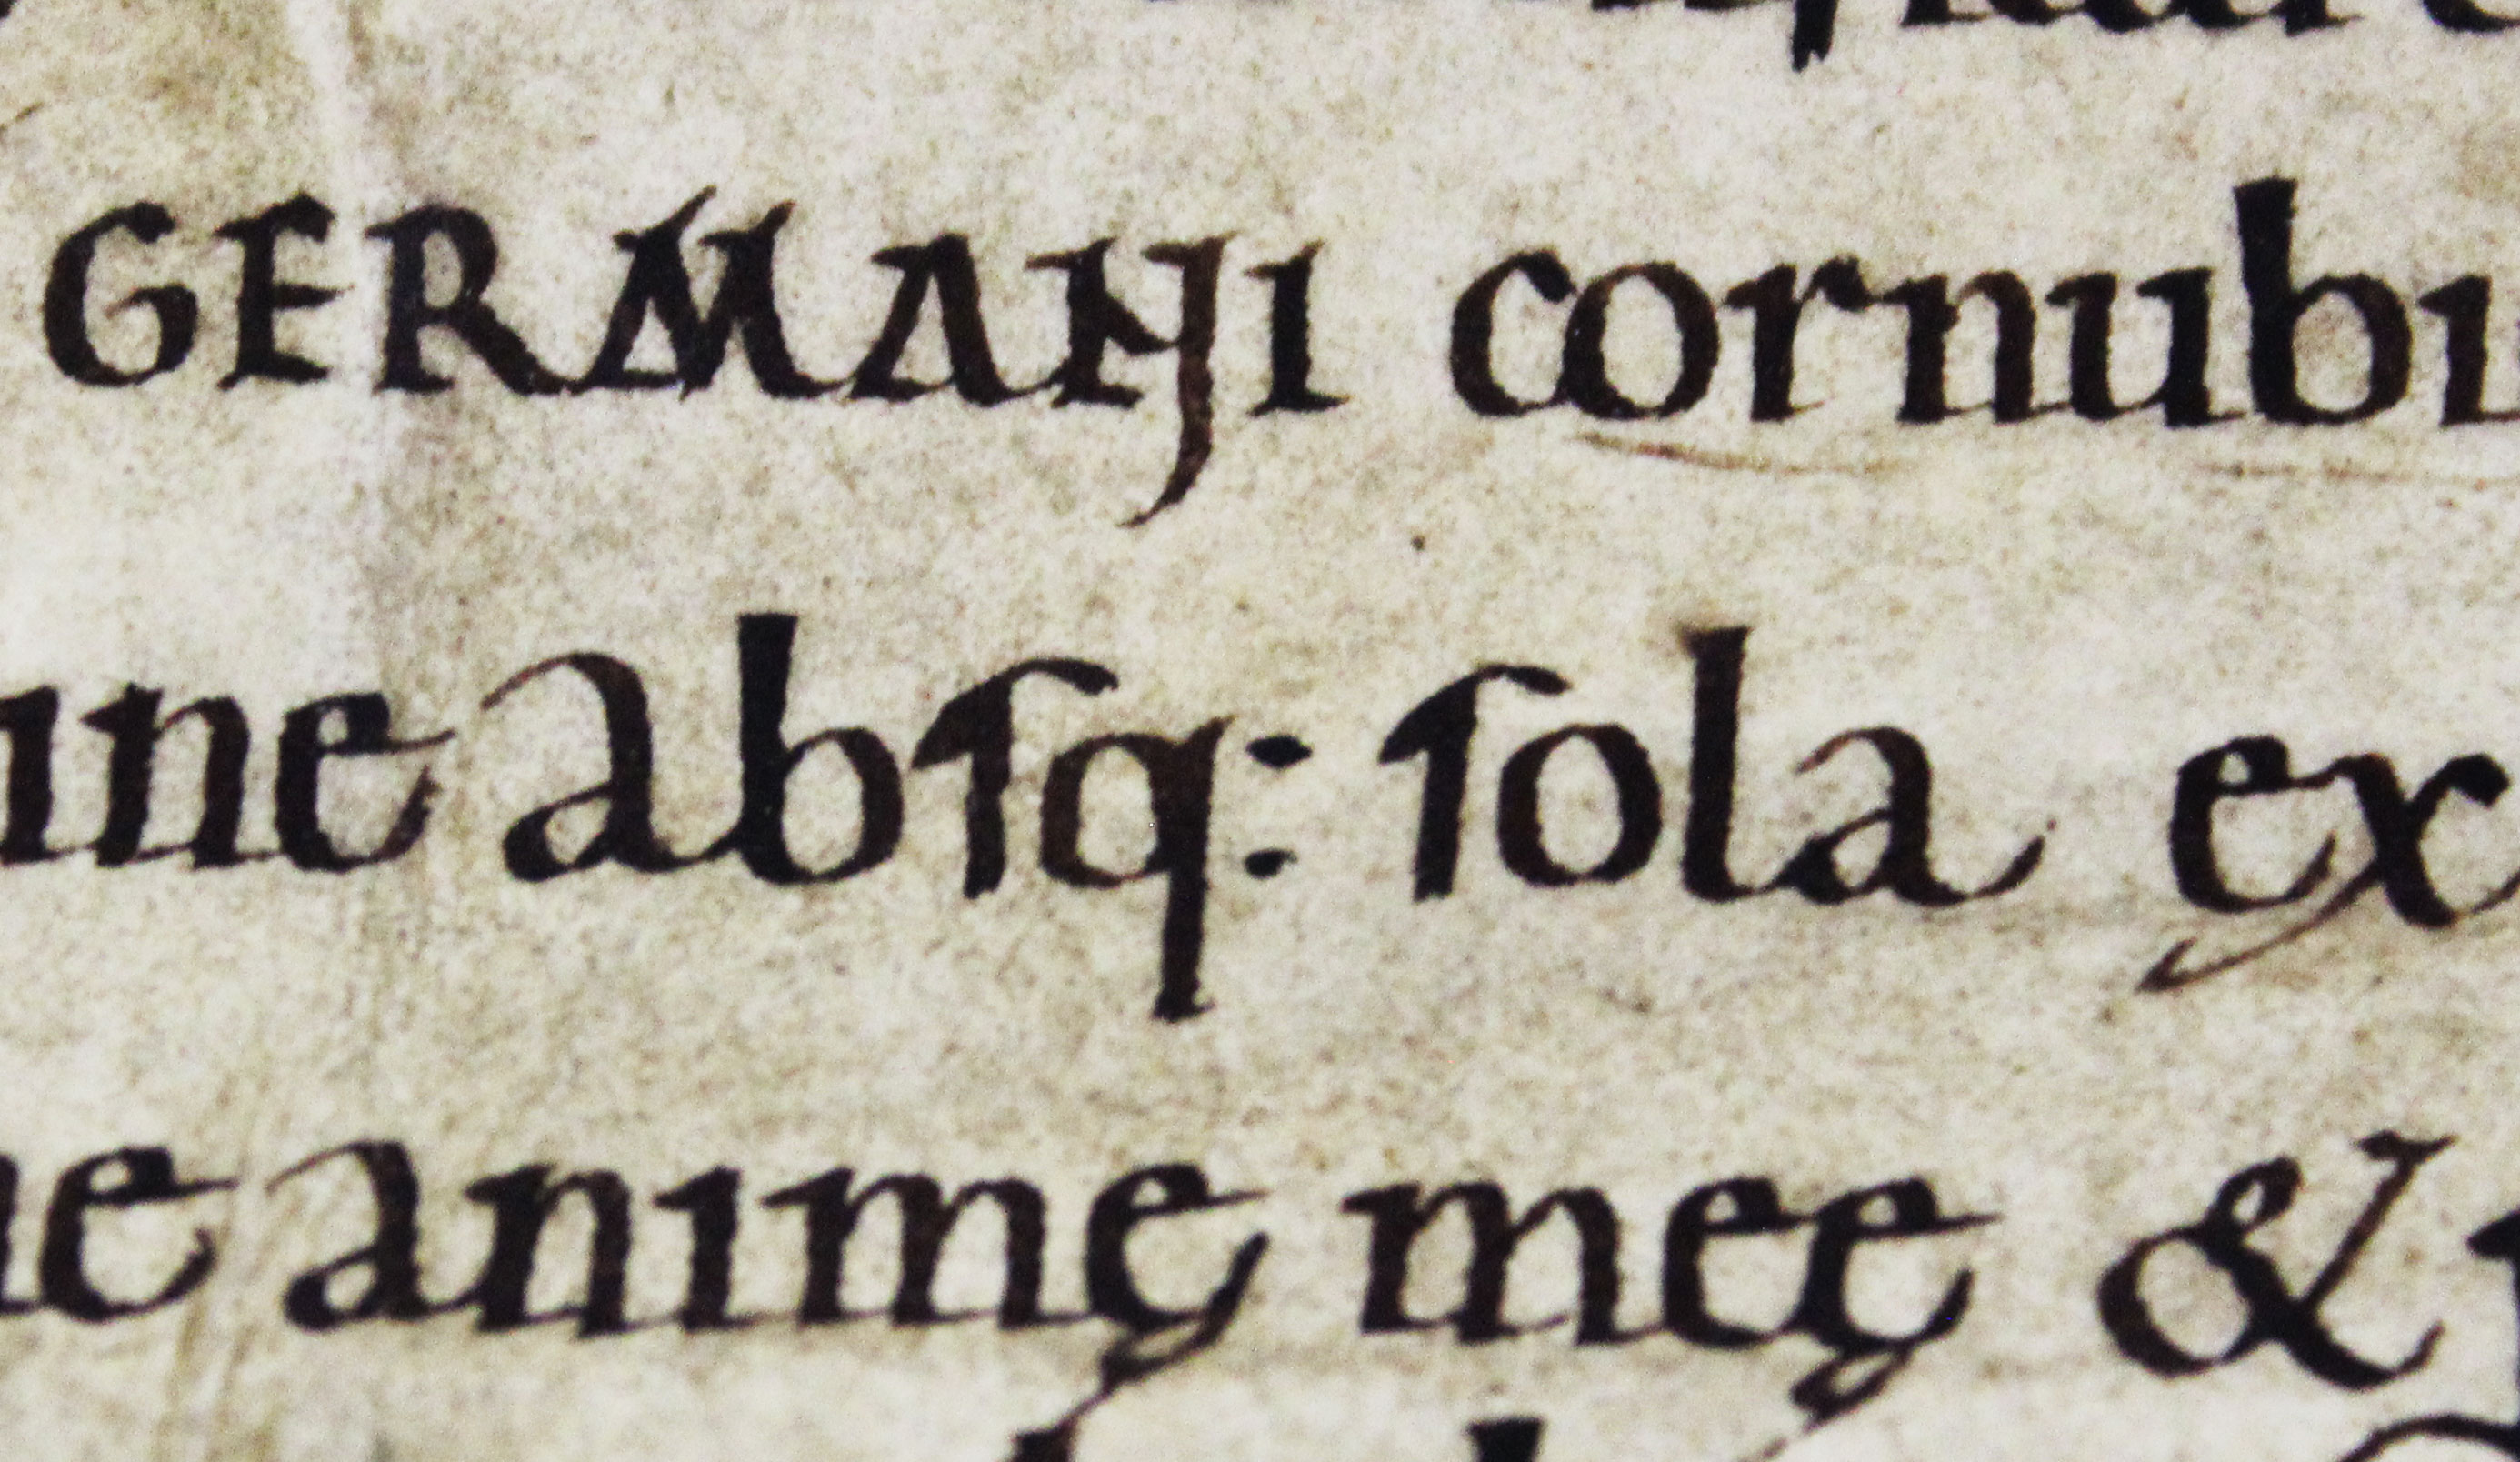 GERMANI cornubi
une absq: sola ex
ne animę meę &